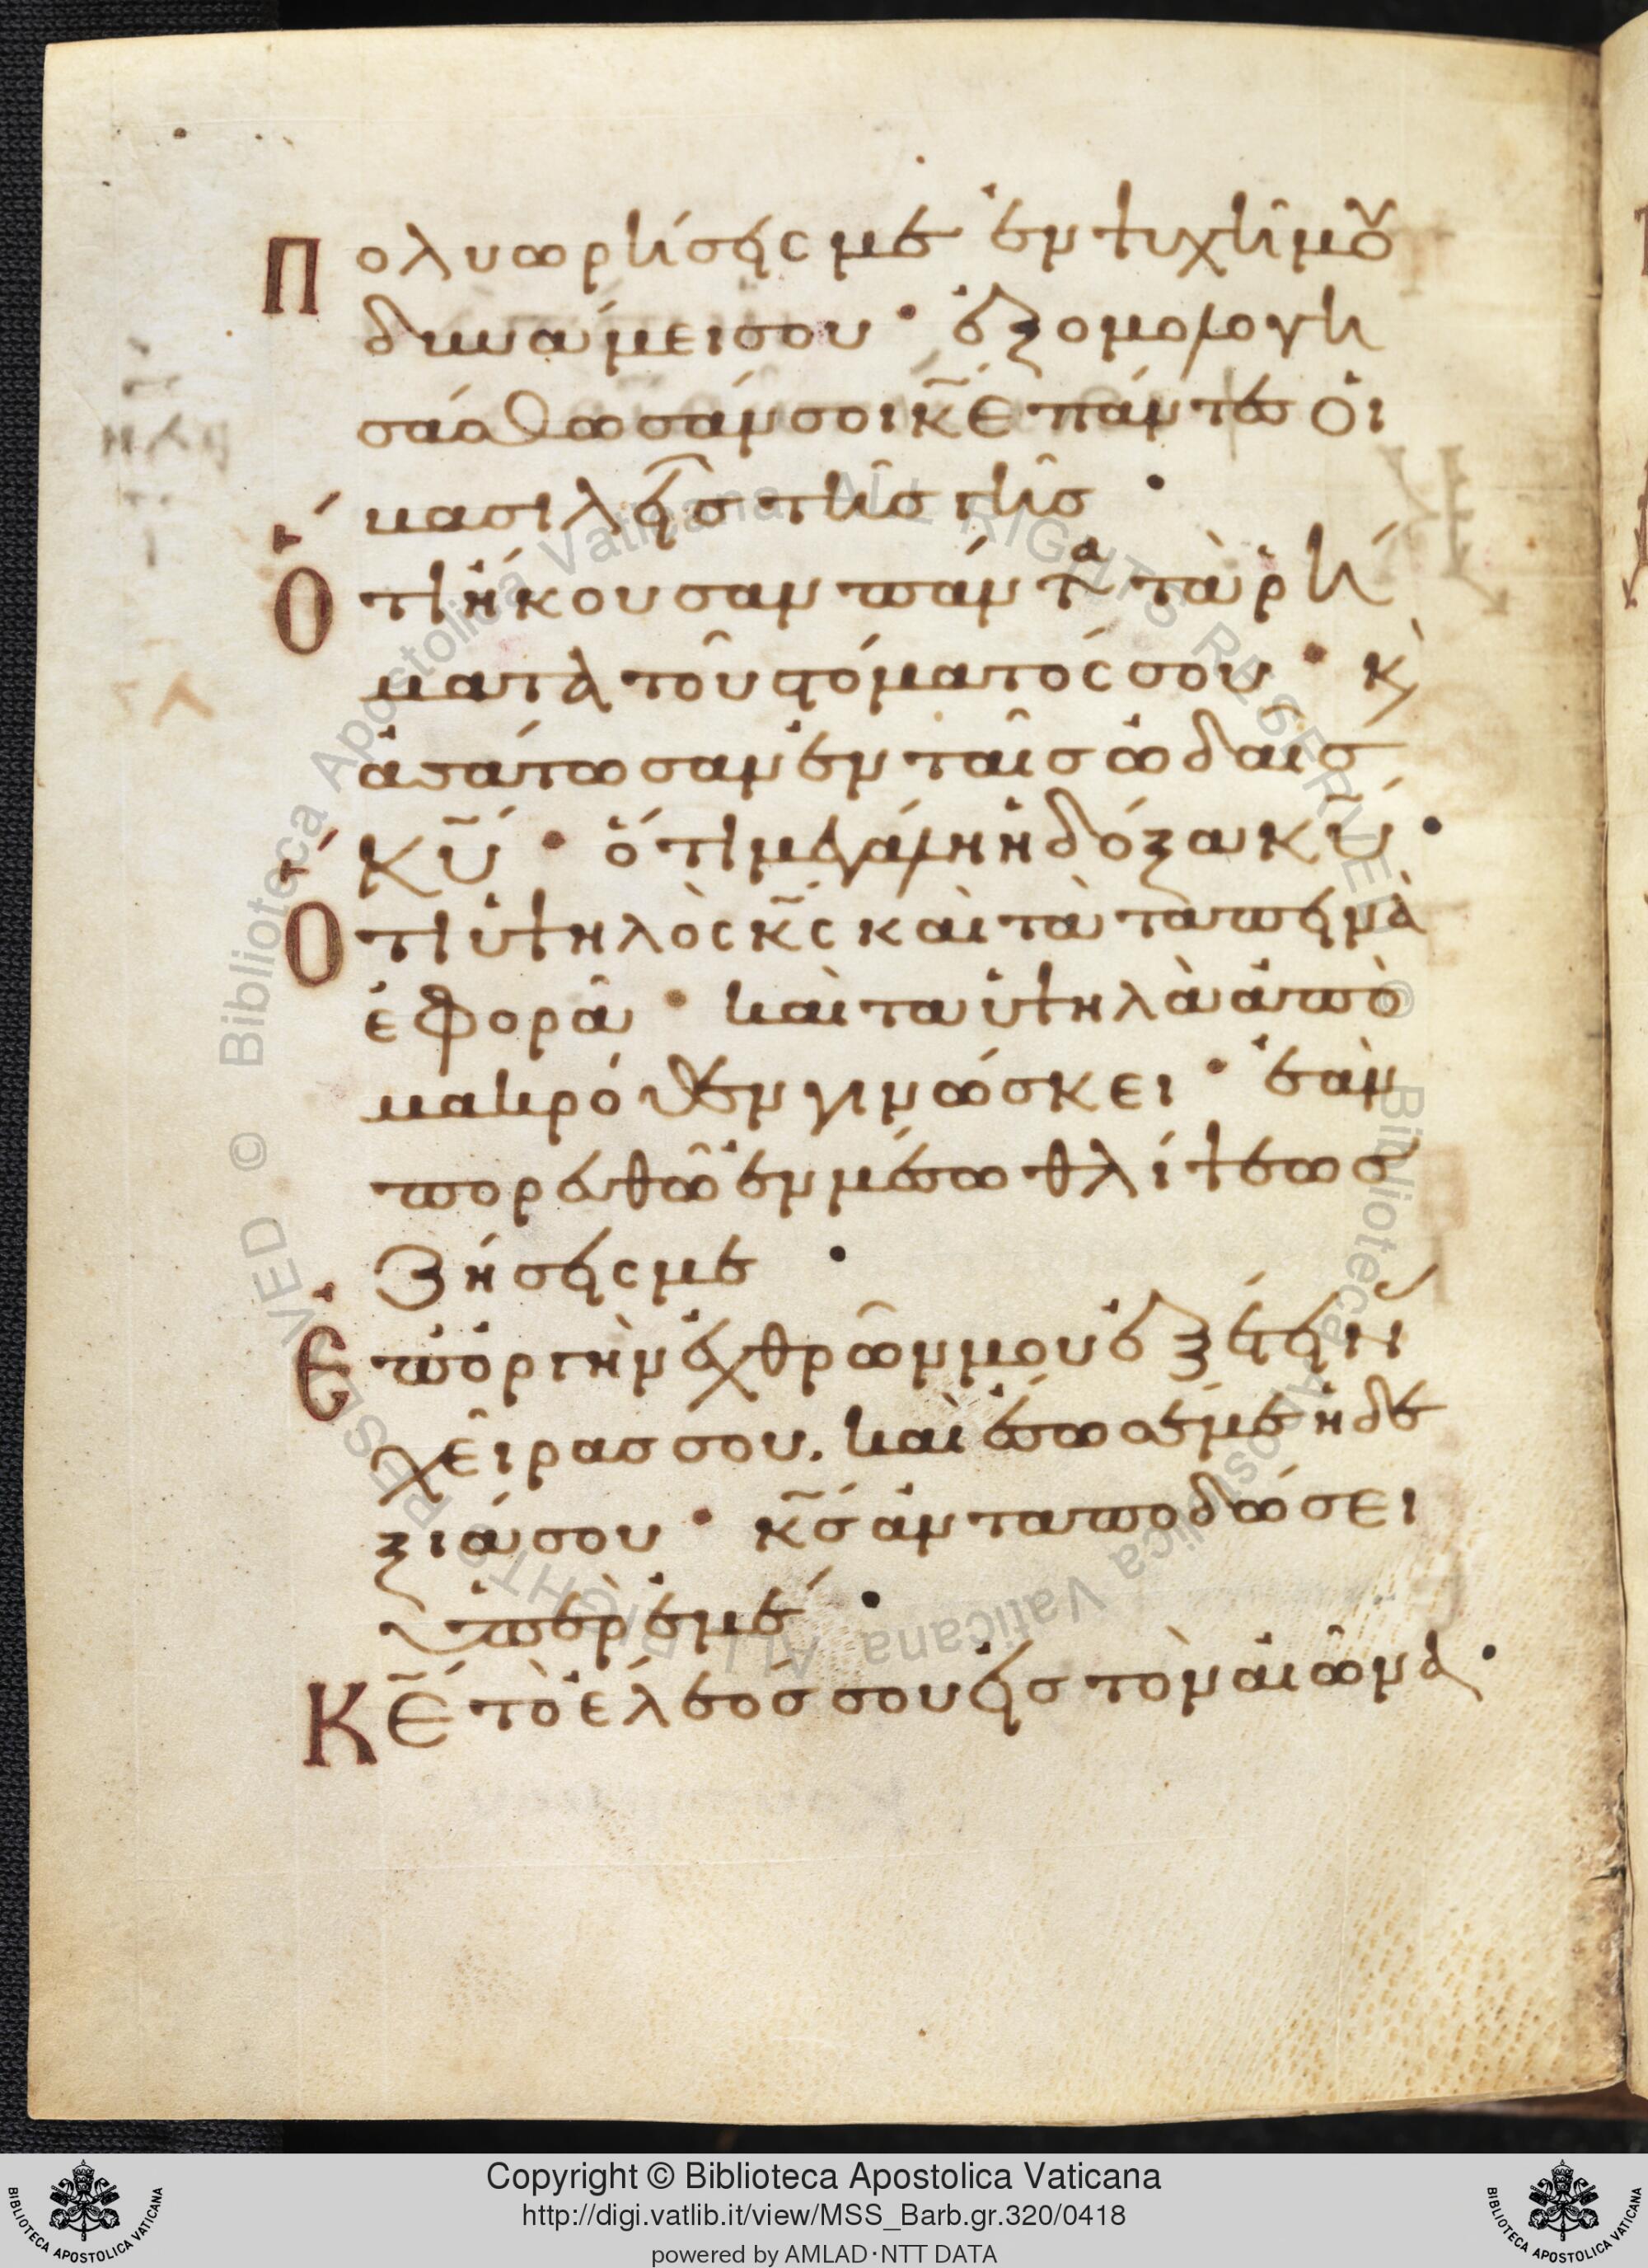 Πολυωρήσεις με ἐν ψυχῆ μου
δυνάμει σου · ἐξομολογη
σάσθωσάν σοι κ̅ε̅ πάντες οἱ
βασιλεῖς τῆς γῆς ·
Ὅτι ἤκουσαν πάντα τὰ ῥή
ματα τοῦ στόματός σου · κὶ
ἀσάτωσαν ἐν ταῖς ὠδαῖς
κ̅υ̅ · ὅτι μεγάλη ἡ δόξα κ̅υ̅ ·
Ὅτι ὑψηλὸς κ̅ς̅ καὶ τὰ ταπεινὰ
ἐφορᾶ · καὶ τα ὑψηλὰ ἀπὸ
μακρόθεν γινώσκει · ἐὰν
πορευθῶ ἐν μέσω θλίψεως
ζήσεις με ·
Ἐπ ὀργὴν ἐχθρῶν μου ἐξέτεινας
χεῖρας σου. καὶ ἔσωσέ με ἡ δε
ξιά σου · κ̅ς̅ ἀνταποδώσει
ὑπὲρ ἐμέ ·
Κ̅ε̅ τὸ ἔλεός σου εἰς τὸν αἰῶνα ·
Copyright © Biblioteca Apostolica Vaticana
http://digi.vatlib.it/view/MSS_Barb.gr.320/0418
powered by AMLAD·NTT DATA